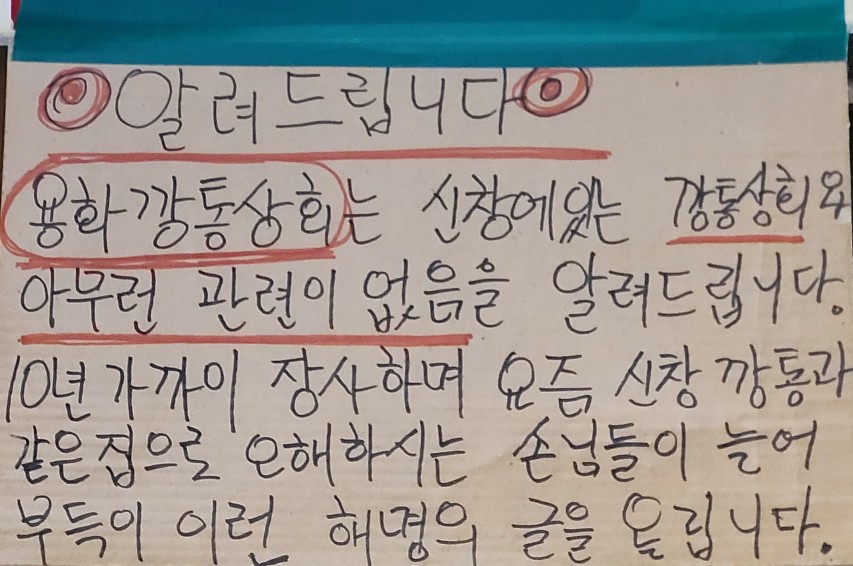 알려드립니다
용화깡통상회는 신창에있는 깡통상회와
아무런 관련이 없음을 알려드립니다.
10년가까이 장사하며 요즘 신창 깡통과
같은집으로 오해하시는 손님들이 늘어
부득이 이런 해명의 글을 올립니다.